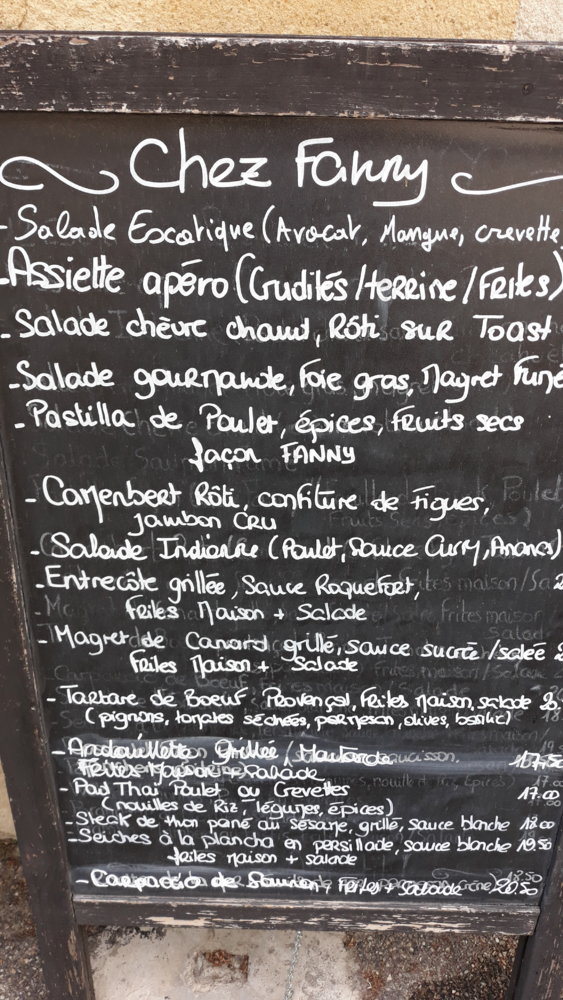 Chez Fanny
- Salade Exotique (Avocat, Mangue, crevette
- Assiette apéro (Crudités/terrine/Frites)
- Salade chèvre chaud, Rôti sur Toast
- Salade gourmande, foie gras, Magret Fumé
- Pastilla de Poulet, épices, fruits secs
façon FANNY
- Camembert Rôti, confiture de Figues,
jambon CRU
- Salade Indienne (Poulet, Sauce Curry, Ananas)
- Entrecôte grillée, Sauce Roquefort,
frites Maison + Salade
- Magret de Canard grillé, sauce sucrée/salée
frites Maison + Salade
- Tartare de Boeuf, Provençal, frites Maison, salade 20,
(pignons, tomates séchées, parmesan, olives, basilic)
- Andouillette Grillée, Moutarde 17,50
Frites Maison + Salade
- Pad Thaï Poulet ou Crevettes 17.00
(nouilles de Riz, légumes, épices)
- Steak de thon pané au sésame, grillé, sauce blanche 18.00
- Seiches à la plancha en persillade, sauce blanche 19,50
frites maison + salade
- Carpaccio de Saumon, Frites + salade 20,50